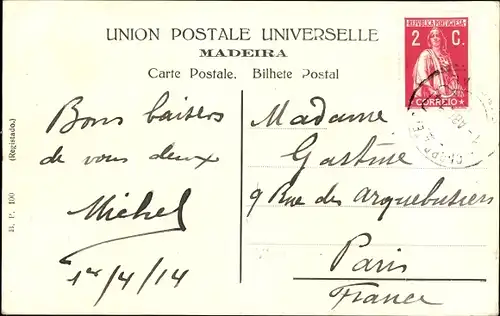 UNION POSTALE UNIVERSELLE
MADEIRA
Carte Postale. Bilhete Postal
REPUBLICA PORTUGUESA
2 C.
CORREIO
Bons baisers
de vous deux
Michel
1er/4/14
Madame
Gastine
9 Rue des arquebusiers
Paris
France
B. P. 100 (Registado.)